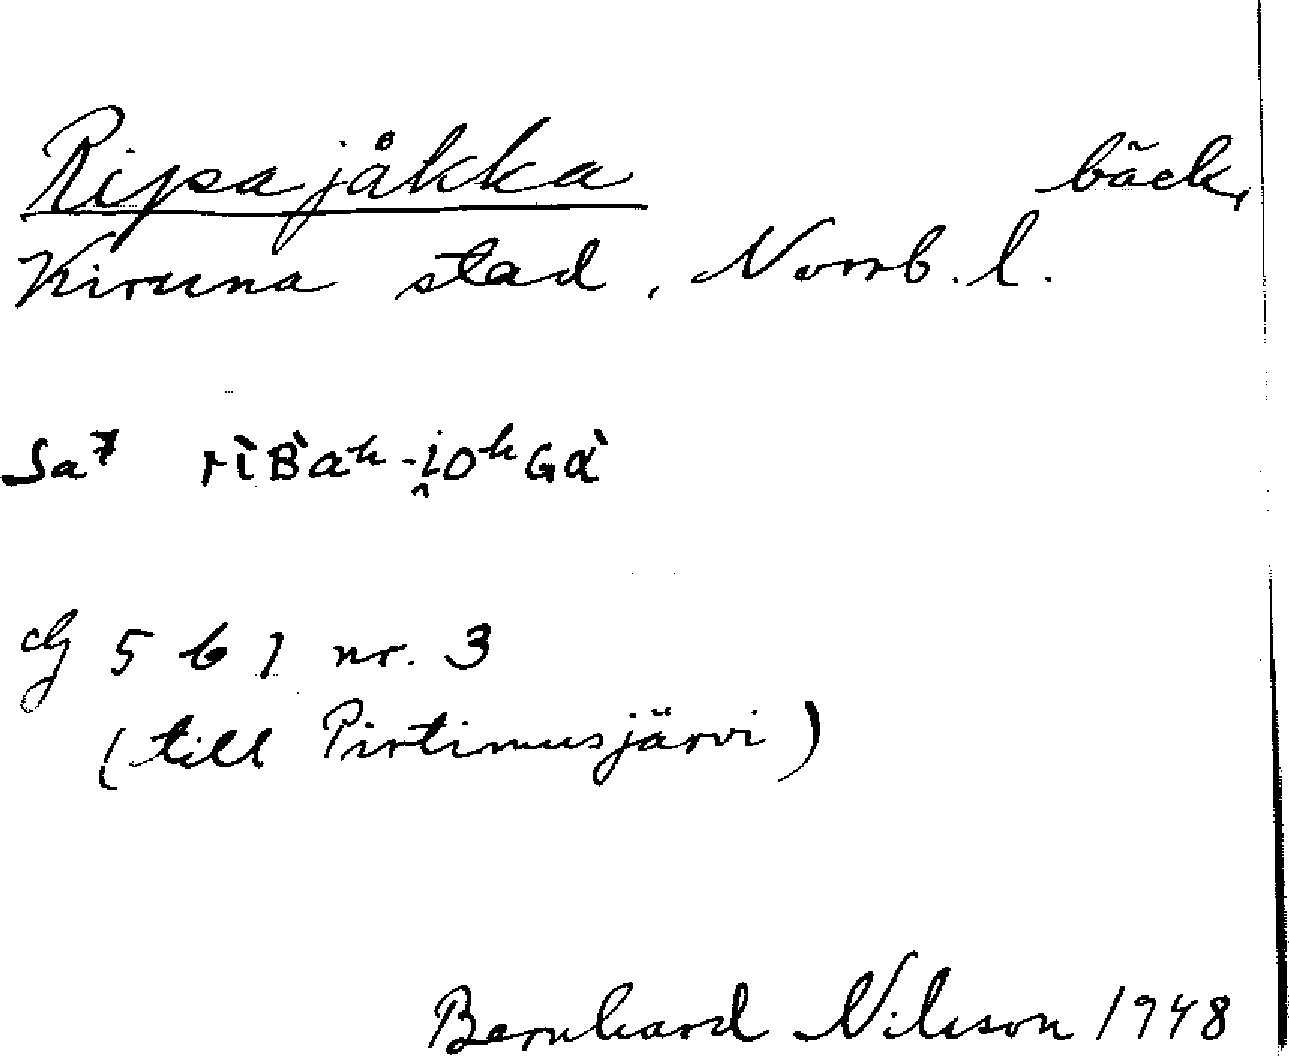 Ripajåkka bäck,
Kiruna stad, Norrb. l.
Sa⁷ rìB̀aʰ-i̯oʰGɑ̀
dg 5 b 1 nr. 3
(till Pirtimusjärvi)
Bernhard Nilsson 1948